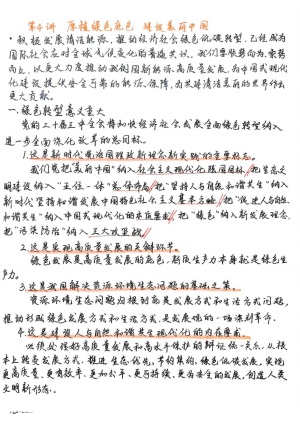 第4讲 厚植绿色底色 建设美丽中国
·积极发展清洁能源,推动经济社会绿色低碳转型,已经成为
国际社会应对全球气候变化的普遍共识,我们要顺势而为、乘势
而上,以更大力度推动我国新能源高质量发展,为中国式现代
化建设提供安全可靠的能源保障,为共建清洁美丽的世界作出
更大贡献。
一、绿色转型意义重大
党的二十届三中全会将加快经济社会发展全面绿色转型纳入
进一步全面深化改革的总目标。
1.这是新时代党治国理政新理念新实践的重要标志。
我们党把“美丽中国”纳入社会主义现代化强国目标,把生态文
明建设纳入“五位一体”总体布局,把“坚持人与自然和谐共生”纳入
新时代坚持和发展中国特色社会主义基本方略,把“促进人与自然
和谐共生”纳入中国式现代化的本质要求,把“绿色”纳入新发展理念,
把“污染防治”纳入三大攻坚战。
2.这是实现高质量发展的关键环节。
绿色发展是高质量发展的底色,新质生产力本身就是绿色生
产力。
3.这是我国解决资源环境生态问题的基础之策。
资源环境生态问题归根到底是发展方式和生活方式问题,
推动形成绿色发展方式和生活方式,是发展观的一场深刻革命。
4.这是建设人与自然和谐共生现代化的内在要求。
必须处理好高质量发展和高水平保护的辩证统一关系,从根
本上转变发展方式,推进生态优先、节约集约、绿色低碳发展,实现
更高质量、更有效率、更加公平、更可持续、更为安全的发展,创造人类
文明新形态。